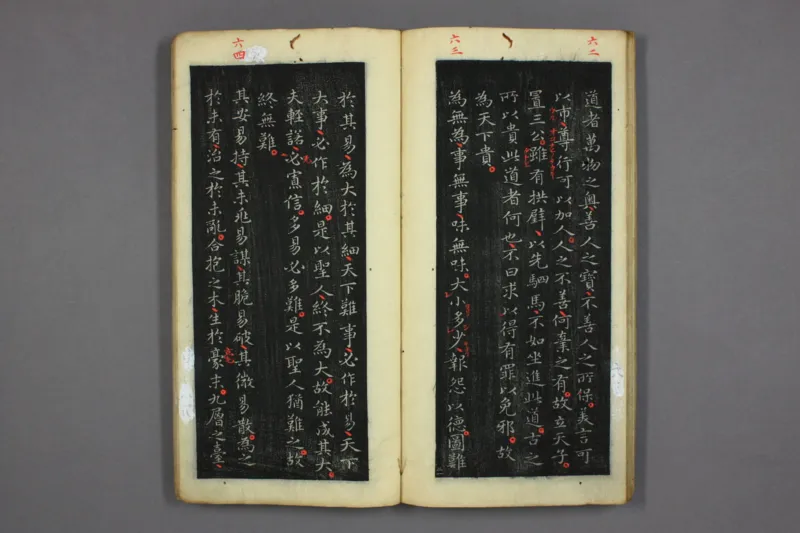 六二
道者萬物之奧善人之寶不善人之所保美言可
以市尊行可以加人人之不善何棄之有故立天子
置三公雖有拱璧以先駟馬不如坐進此道古之
所以貴此道者何也不曰求以得有罪以免邪故
為天下貴
六三
為無為事無事味無味大小多少報怨以德圖難
於其易為大於其細天下難事必作於易天下
大事必作於細是以聖人終不為大故能成其大
夫輕諾必寡信多易必多難是以聖人猶難之故
終無難
六四
其安易持其未兆易謀其脆易破其微易散為之
於未有治之於未亂合抱之木生於豪末九層之臺